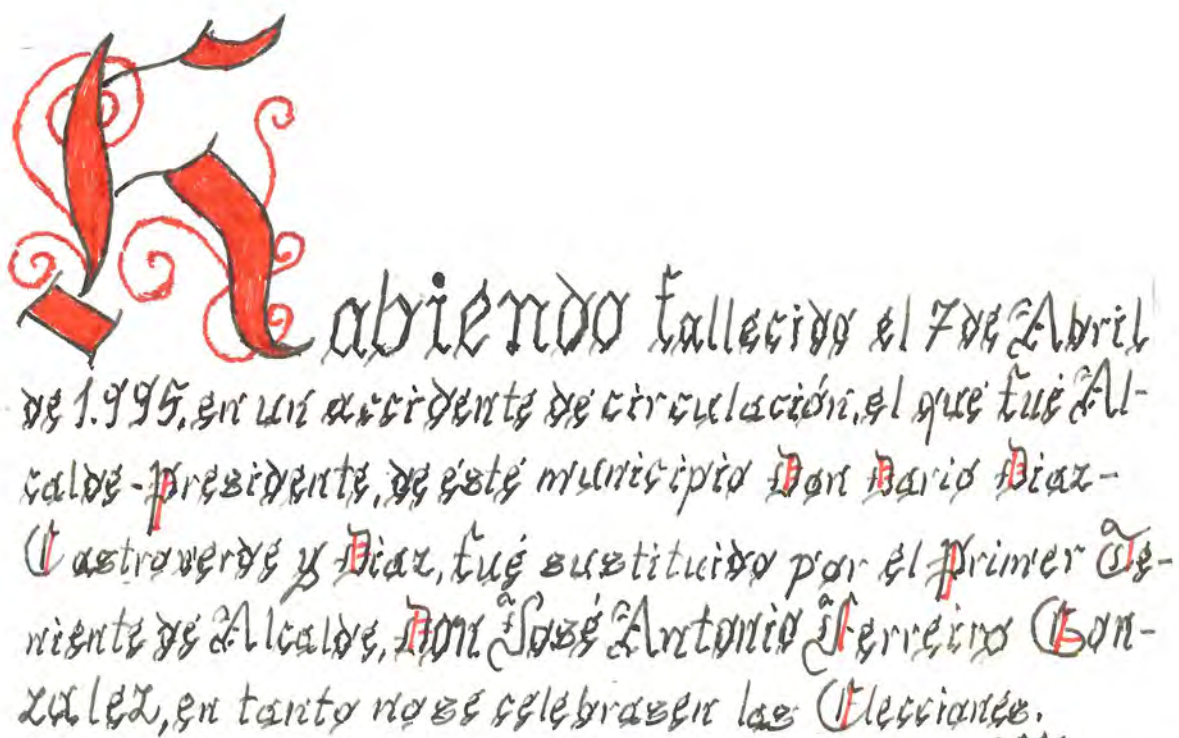 Habiendo fallecido el 7 de Abril
de 1.995, en un accidente de circulación, el que fué Al-
calde-Presidente, de éste municipio Don Dario Diaz-
Castroverde y Diaz, fué sustituido por el Primer Te-
niente de Alcalde, Don José Antonio Ferreiro Gon-
zalez, en tanto no se celebrasen las Elecciones.